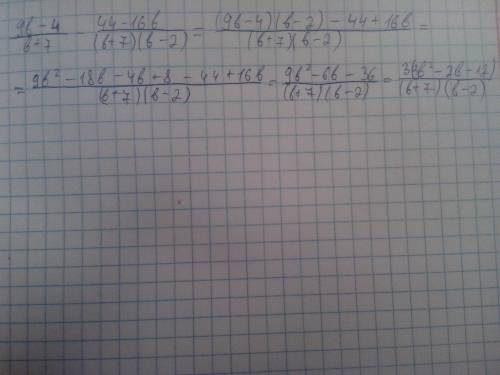 (9b-4)/(b+7) - (44-16b)/((b+7)(b-2)) = ((9b-4)(b-2)-44+16b)/((b+7)(b-2)) =
= (9b²-18b-4b+8-44+16b)/((b+7)(b-2)) = (9b²-6b-36)/((b+7)(b-2)) = (3(3b²-2b-12))/((b+7)(b-2))